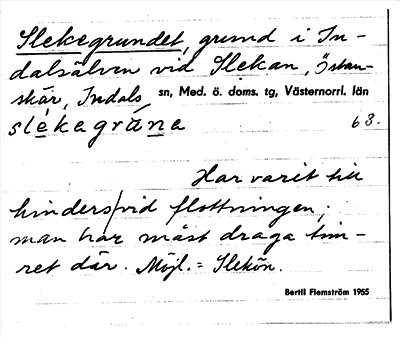 Slekegrundet, grund i In-
dalsälven vid Slekan, Östan-
skär, Indals sn, Med. ö. doms. tg, Västernorrl. län
slekagrúna 63.
Har varit till
hinders vid flottningen;
man har måst draga tim-
ret där. Möjl. = Slekön.
Bertil Flemström 1955